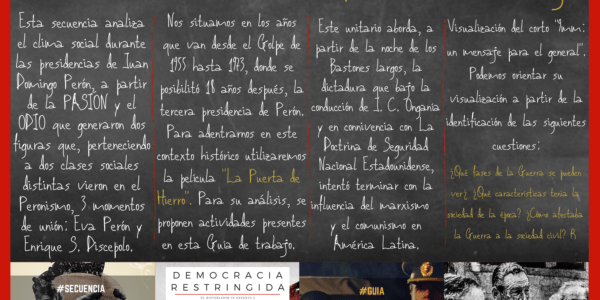 Esta secuencia analiza
el clima social durante
las presidencias de Juan
Domingo Perón, a partir
de la PASIÓN y el
ODIO que generaron dos
figuras que, perteneciendo
a dos clases sociales
distintas vieron en el
Peronismo, 3 momentos
de unión: Eva Perón y
Enrique S. Discepolo.
Nos situamos en los años
que van desde el Golpe de
1955 hasta 1973, donde se
posibilitó 18 años después, la
tercera presidencia de Perón.
Para adentrarnos en este
contexto histórico utilizaremos
la película "La Puerta de
Hierro". Para su análisis, se
proponen actividades presentes
en esta Guía de trabajo.
Este unitario aborda, a
partir de la noche de los
Bastones largos, la
dictadura que bajo la
conducción de J. C. Onganía
y en connivencia con La
Doctrina de Seguridad
Nacional Estadounidense,
intentó terminar con la
influencia del marxismo
y el comunismo en
América Latina.
Visualización del corto "Imm:
un mensaje para el general".
Podemos orientar su
visualización a partir de la
identificación de las siguientes
cuestiones:
¿Qué fases de la Guerra se pueden
ver? ¿Qué características tenía la
sociedad de la época? ¿Cómo afectaba
la Guerra a la sociedad civil? R
#SECUENCIA
DEMOCRACIA
RESTRINGIDA
#GUIA